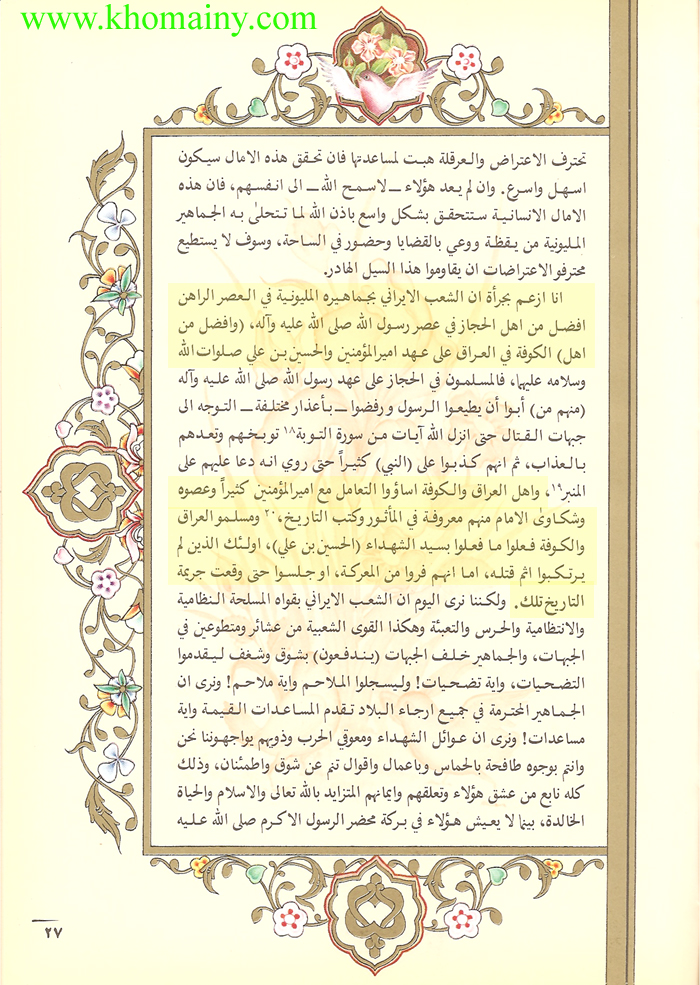 www.khomainy.com
تحترف الاعتراض والعرقلة هبت لمساعدتها فان تحقق هذه الامال سيكون
اسهل واسرع. وان لم يعد هؤلاء ــ لاسمح الله ــ الى انفسهم، فان هذه
الامال الانسانية ستتحقق بشكل واسع باذن الله لما تتحلىٰ به الجماهير
المليونية من يقظة ووعي بالقضايا وحضور في الساحة، وسوف لا يستطيع
محترفو الاعتراضات ان يقاوموا هذا السيل الهادر.
انا ازعم بجرأة ان الشعب الايراني بجماهيره المليونية في العصر الراهن
افضل من اهل الحجاز في عصر رسول الله صلى الله عليه وآله، (وافضل من
اهل) الكوفة في العراق على عهد اميرالمؤمنين والحسين بن علي صلوات الله
وسلامه عليهما، فالمسلمون في الحجاز على عهد رسول الله صلى الله عليه وآله
(منهم من) أبـوا أن يطيعوا الرسول ورفضوا ــ بأعذار مختلفة ــ التوجه الى
جبهات القتال حتى انزل الله آيات من سورة التوبة١٨ توبخهم وتعدهم
بالعذاب، ثم انهم كذبوا على (النبي) كثيراً حتى روي انه دعا عليهم على
المنبر١٩، واهل العراق والكوفة اساؤوا التعامل مع اميرالمؤمنين كثيراً وعصوه
وشكاوىٰ الامام منهم معروفة في المأثور وكتب التاريخ،٢٠ ومسلمو العراق
والكوفة فعلوا ما فعلوا بسيد الشهداء (الحسين بن علي)، اولئك الذين لم
يرتكبوا اثم قتله، اما انهم فروا من المعركة، او جلسوا حتى وقعت جريمة
التاريخ تلك. ولكننا نرى اليوم ان الشعب الايراني بقواه المسلحة النظامية
والانتظامية والحرس والتعبئة وهكذا القوى الشعبية من عشائر ومتطوعين في
الجبهات، والجماهير خلف الجبهات (يندفعون) بشوق وشغف ليقدموا
التضحيات، واية تضحيات! وليسجلوا الملاحم واية ملاحم! ونرى ان
الجماهير المحترمة في جميع ارجاء البلاد تقدم المساعدات القيمة واية
مساعدات! ونرى ان عوائل الشهداء ومعوقي الحرب وذويهم يواجهوننا نحن
وانتم بوجوه طافحة بالحماس وباعمال واقوال تنم عن شوق واطمئنان، وذلك
كله نابع من عشق هؤلاء وتعلقهم وايمانهم المتزايد بالله تعالى والاسلام والحياة
الخالدة، بينما لا يعيش هؤلاء في بركة محضر الرسول الاكرم صلى الله عليه
٢٧